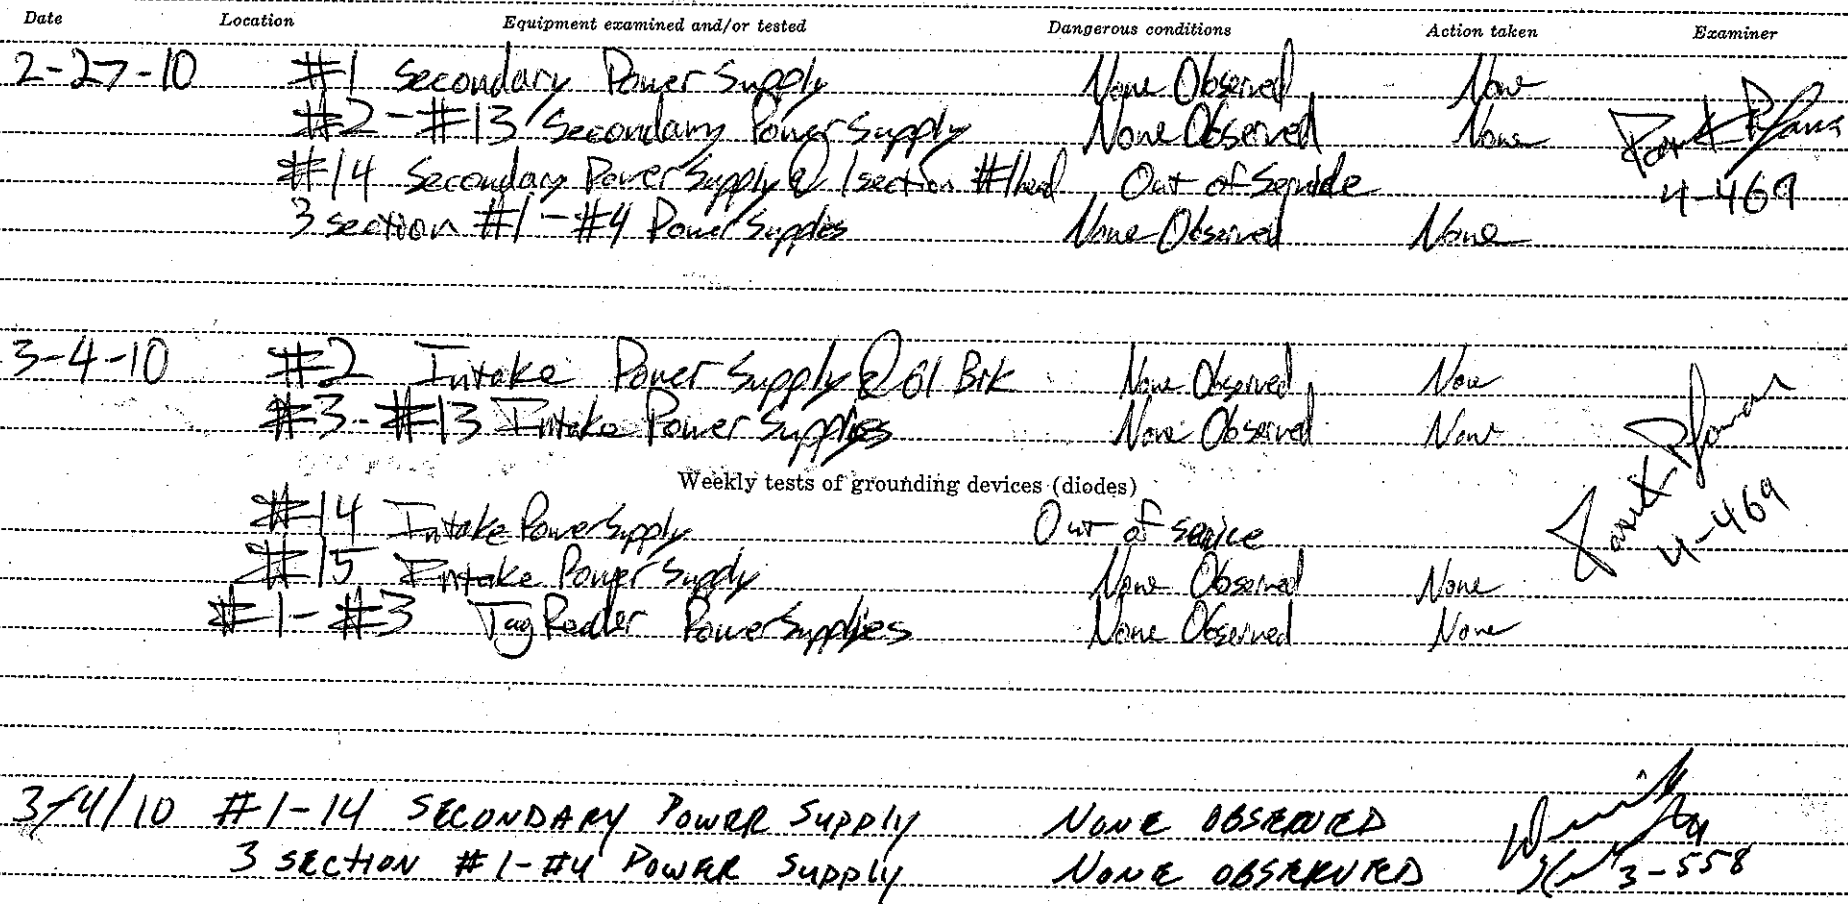 Date Location Equipment examined and/or tested Dangerous conditions Action taken Examiner
2-27-10 #1 Secondary Power Supply None Observed None
#2-#13 Secondary Power Supply None Observed None
#14 Secondary Power Supply @ 1 section #1 head Out of Service
4-469
3 section #1-#4 Power Supplies None Observed None
3-4-10 #2 Intake Power Supply @ 61 Brk None Observed None
#3-#13 Intake Power Supplies None Observed None
Weekly tests of grounding devices (diodes)
#14 Intake Power Supply Out of Service
4-469
#15 Intake Power Supply None Observed None
#1-#3 Tag Reader Power Supplies None Observed None
3/4/10 #1-14 SECONDARY POWER SUPPLY NONE OBSERVED
3 SECTION #1-#4 POWER SUPPLY NONE OBSERVED 3-558